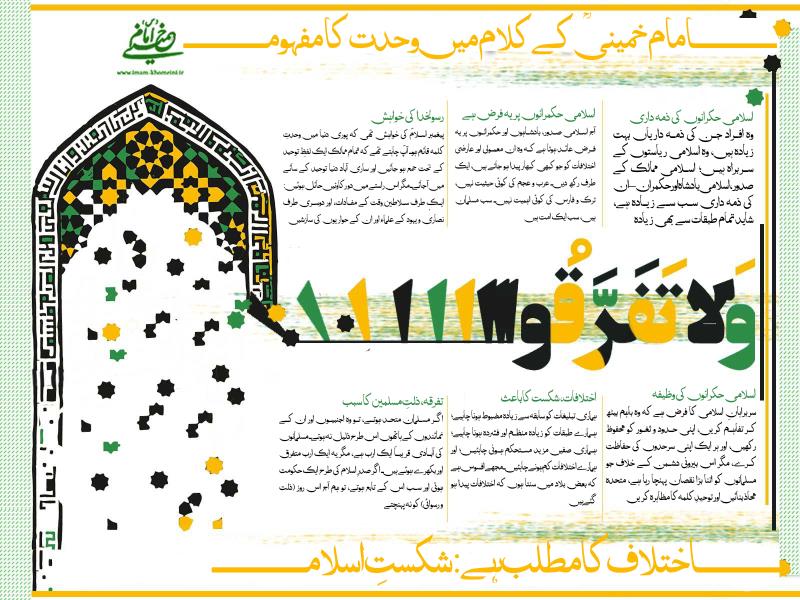 امام خمینیؒ کے کلام میں وحدت کا مفہوم
www.imam-khomeini.ir
اسلامی حکرانوں کی ذمہ داری
وہ افراد جن کی ذمہ داریاں بہت
زیادہ ہیں، وہ اسلامی ریاستوں کے
سربراہ ہیں؛ اسلامی ممالک کے
صدور، اسلامی بادشاہ اور حکمران-ان
کی ذمہ داری سب سے زیادہ ہے،
شاید تمام طبقات سے بھی زیادہ
اسلامی حکمرانوں پر یہ فرض ہے
آج اسلامی صدور، بادشاہوں اور حکمرانوں پر یہ
فرض عائد ہوتا ہے کہ وہ ان معمولی اور عارضی
اختلافات کو جو کبھی کبھار پیدا ہو جاتے ہیں، ایک
طرف رکھ دیں۔ عرب و عجم کی کوئی حیثیت نہیں،
ترک و فارس کی کوئی اہمیت نہیں۔ سب مسلمان
ہیں، سب ایک امت ہیں
رسولخدا کی خواہش
پیغمبر اسلام کی خواہش تھی کہ پوری دنیا میں وحدتِ
کلمہ قائم ہو۔ آپ چاہتے تھے کہ تمام ممالک ایک لفظِ توحید
کے تحت جمع ہو جائیں اور ساری آباد دنیا توحید کے سائے
میں آ جائے۔ مگر اس راستے میں دو رکاوٹیں حائل ہوئیں:
ایک طرف سلاطینِ وقت کے مفادات، اور دوسری طرف
نصاریٰ و یہود کے علماء اور ان کے حواریوں کی سازشیں
وَلا تَفَرَّقُوا
اسلامی حکرانوں کی وظیفہ
سربراہانِ اسلامی کا فرض ہے کہ وہ باہم بیٹھ
کر تفاہم کریں، اپنی حدود و ثغور کو محفوظ
رکھیں، اور ہر ایک اپنی سرحدوں کی حفاظت
کرے، مگر اس بیرونی دشمن کے خلاف جو
مسلمانوں کو اتنا بڑا نقصان پہنچا رہا ہے، متحدہ
محاذ بنائیں اور توحیدِ کلمہ کا مظاہرہ کریں
اختلافات، شکست کا باعث
ہماری تبلیغات کو سابقہ سے زیادہ مضبوط ہونا چاہیے؛
ہمارے طبقات کو زیادہ منظم اور فشردہ ہونا چاہیے؛
ہماری صفیں مزید مستحکم ہونی چاہئیں؛ اور
ہمارے اختلافات کم ہونے چاہئیں۔ مجھے افسوس ہے
کہ بعض بلاد میں سنتا ہوں کہ اختلافات پیدا ہو
گئے ہیں
تفرقہ، ذلتِ مسلمین کا سبب
اگر مسلمان متحد ہوتے، تو وہ اجنبیوں اور ان کے
نمائندوں کے ہاتھوں اس طرح ذلیل نہ ہوتے۔ مسلمانوں
کی آبادی تقریباً ایک ارب ہے، مگر یہ ایک ارب متفرق
اور بکھرے ہوئے ہیں۔ اگر صدرِ اسلام کی طرح ایک حکومت
ہوتی اور سب اس کے تابع ہوتے، تو ہم آج اس روز (ذلت
و رسوائی) کو نہ پہنچتے
اختلاف کا مطلب ہے: شکستِ اسلام